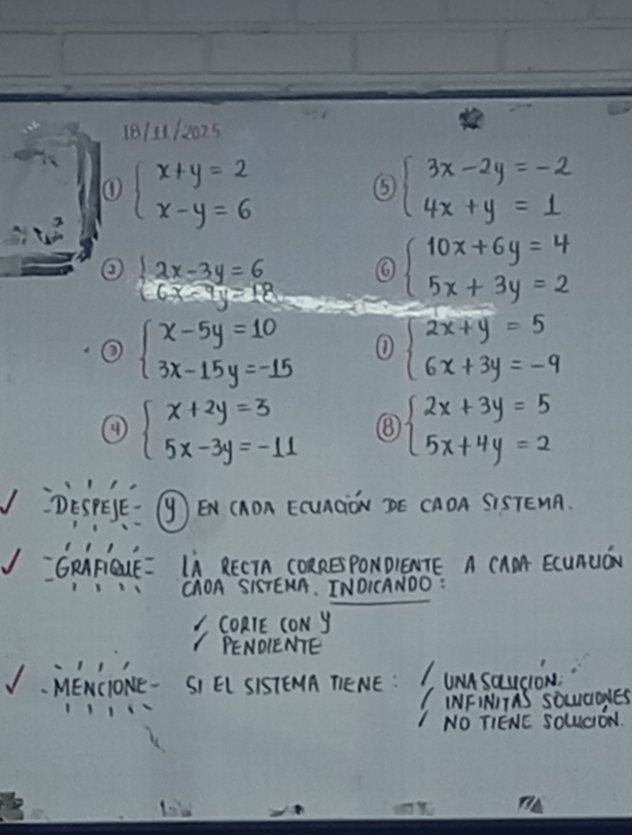 18/11/2025
① x+y=2
x-y=6
② 2x-3y=6
6x-9y=18
③ x-5y=10
3x-15y=-15
④ x+2y=3
5x-3y=-11
⑤ 3x-2y=-2
4x+y=1
⑥ 10x+6y=4
5x+3y=2
⑦ 2x+y=5
6x+3y=-9
⑧ 2x+3y=5
5x+4y=2
✓ -DESPEJE- y EN CADA ECUACIÓN DE CADA SISTEMA.
✓ -GRAFIQUE- LA RECTA CORRESPONDIENTE A CADA ECUACIÓN
CADA SISTEMA. INDICANDO:
✓ CORTE CON y
✓ PENDIENTE
✓ -MENCIONE- SI EL SISTEMA TIENE: ✓ UNA SOLUCIÓN.
✓ INFINITAS SOLUCIONES
✓ NO TIENE SOLUCIÓN.